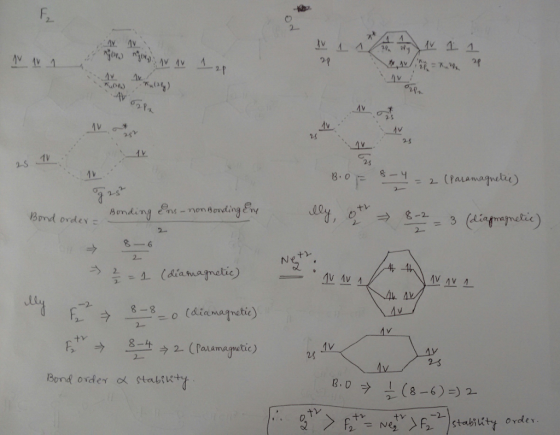 F2
π*g(πx) π*g(πy)
1v 1v 1 1v 1v 1 2p
πu(πx) πu(πy)
σ2pz
1v σ*2s²
2s 1v 1v
1v
σg 2s²
Bond order = Bonding e⁻ns - nonBonding e⁻ns / 2
⇒ 8-6 / 2
⇒ 2/2 = 1 (diamagnetic)
lly F2^-2 ⇒ 8-8 / 2 = 0 (diamagnetic)
F2^+2 ⇒ 8-4 / 2 ⇒ 2 (Paramagnetic)
Bond order α stability.
O2
π*
1v 1 1 1v 1v 1
2p 2p
σ2pz
1v σ*2s
2s 1v 1v 2s
1v
σ2s
B.O = 8-4 / 2 = 2 (Paramagnetic)
lly, O2^+2 ⇒ 8-2 / 2 = 3 (diamagnetic)
Ne2^+2 :
1v 1v 1 1v 1v 1
1v
1v
2s 1v 1v 2s
1v
B.O ⇒ 1/2 (8-6) ⇒ 2
∴ O2^+2 > F2^+2 = Ne2^+2 > F2^-2 stability order.